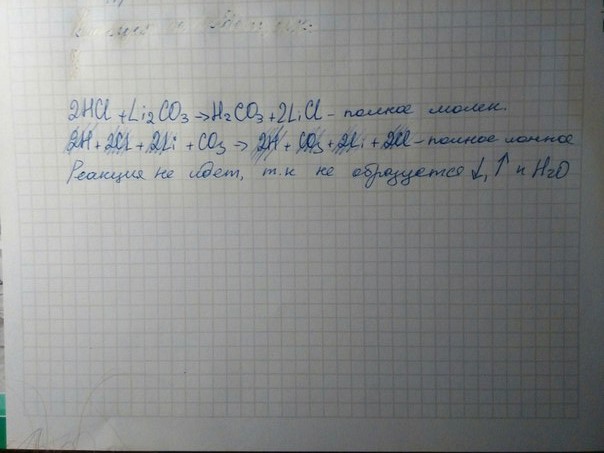 2HCl + Li2CO3 → H2CO3 + 2LiCl - полное молек.
2H + 2Cl + 2Li + CO3 → 2H + CO3 + 2Li + 2Cl - полное ионное
Реакция не идет, т.к не образуется ↓, ↑ и H2O